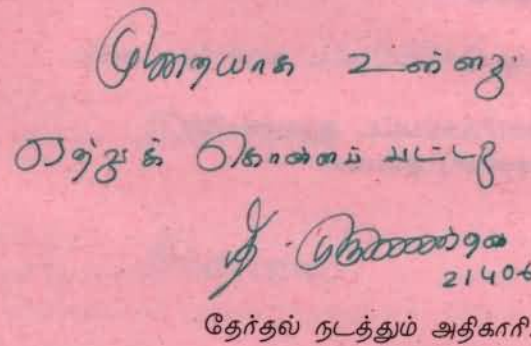 முறையாக உள்ளது
ஏற்றுக் கொள்ளப் பட்டது
தேர்தல் நடத்தும் அதிகாரி